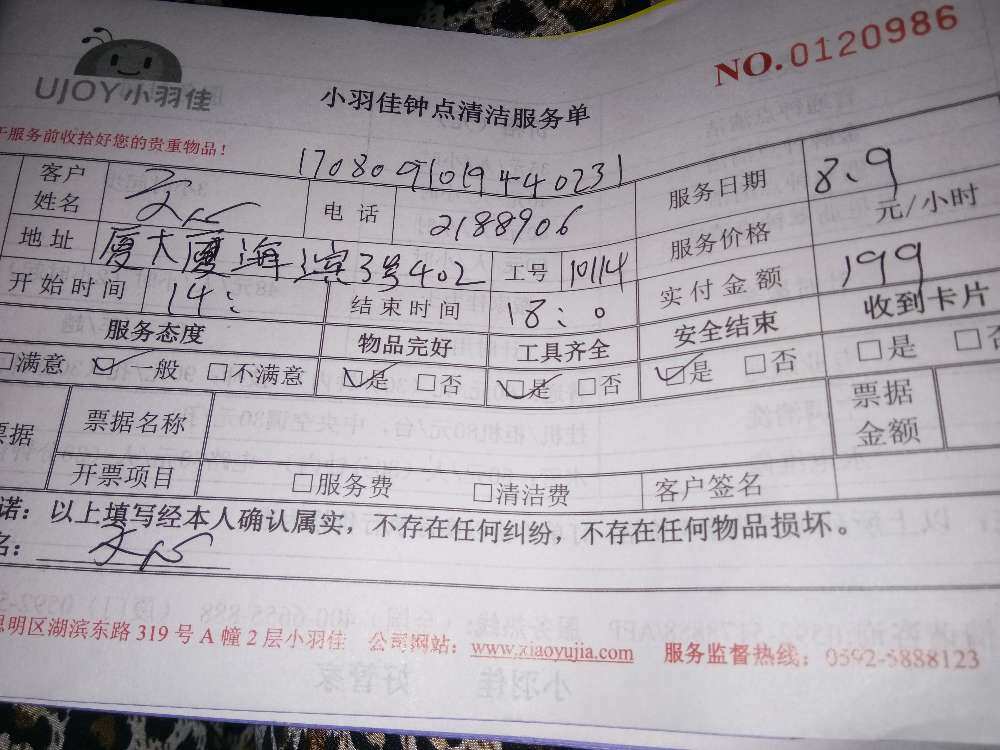 UJOY小羽佳
NO.0120986
小羽佳钟点清洁服务单
服务前收拾好您的贵重物品！
17080910194440231
客户姓名 电话 2188906 服务日期 8.9
地址 厦大厦海滨3号402 工号 10114 服务价格 元/小时
开始时间 14: 结束时间 18:0 实付金额 199
服务态度 物品完好 工具齐全 安全结束 收到卡片
□满意 ☑一般 □不满意 ☑是 □否 ☑是 □否 ☑是 □否 □是 □否
票据 票据名称 票据金额
开票项目 □服务费 □清洁费 客户签名
诺：以上填写经本人确认属实，不存在任何纠纷，不存在任何物品损坏。
名：
思明区湖滨东路319号A幢2层小羽佳 公司网站：www.xiaoyujia.com 服务监督热线：0592-5888123